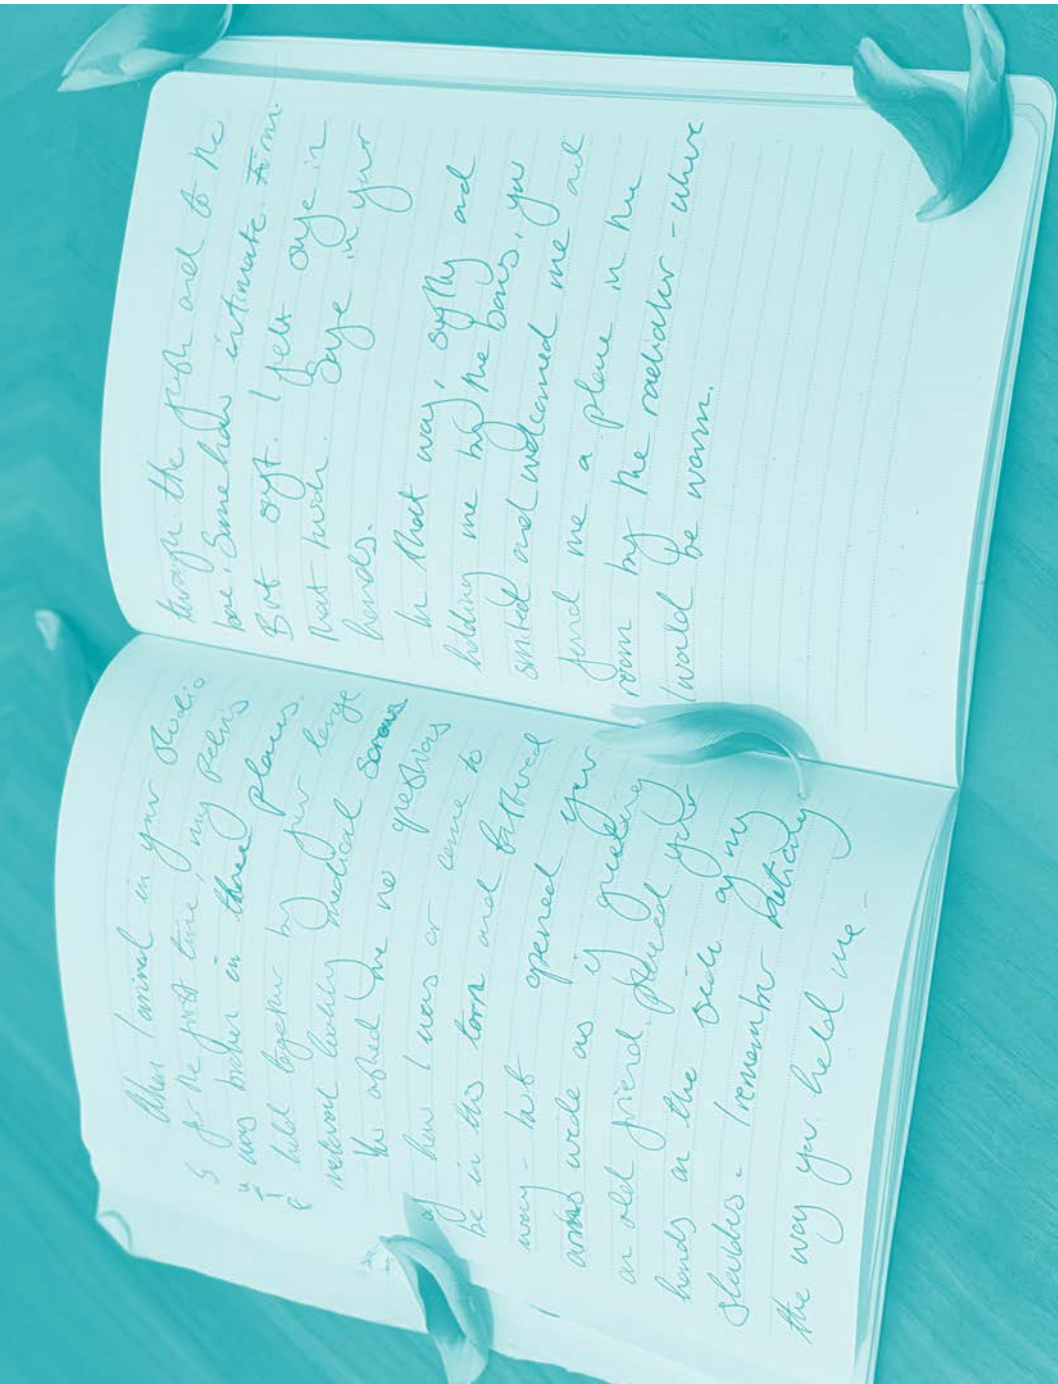 When I arrived in your studio
for the first time, my pelvis
was broken in three places.
held together by four large
medieval looking medical screws
You asked me no questions
of how I was or came to
be in this torn and battered
way - but opened your
arms wide as if greeting
an old friend, placed your
hands on the side of my
shoulders. I remember distinctly
the way you held me -
through the flesh and to the
bone. Somehow intimate. Firm.
But soft. I felt safe in
that touch. Safe in your
hands.
In that way, softly and
holding me by the bones, you
smiled and welcomed me and
found me a place in the
room by the radiator - where
I would be warm.